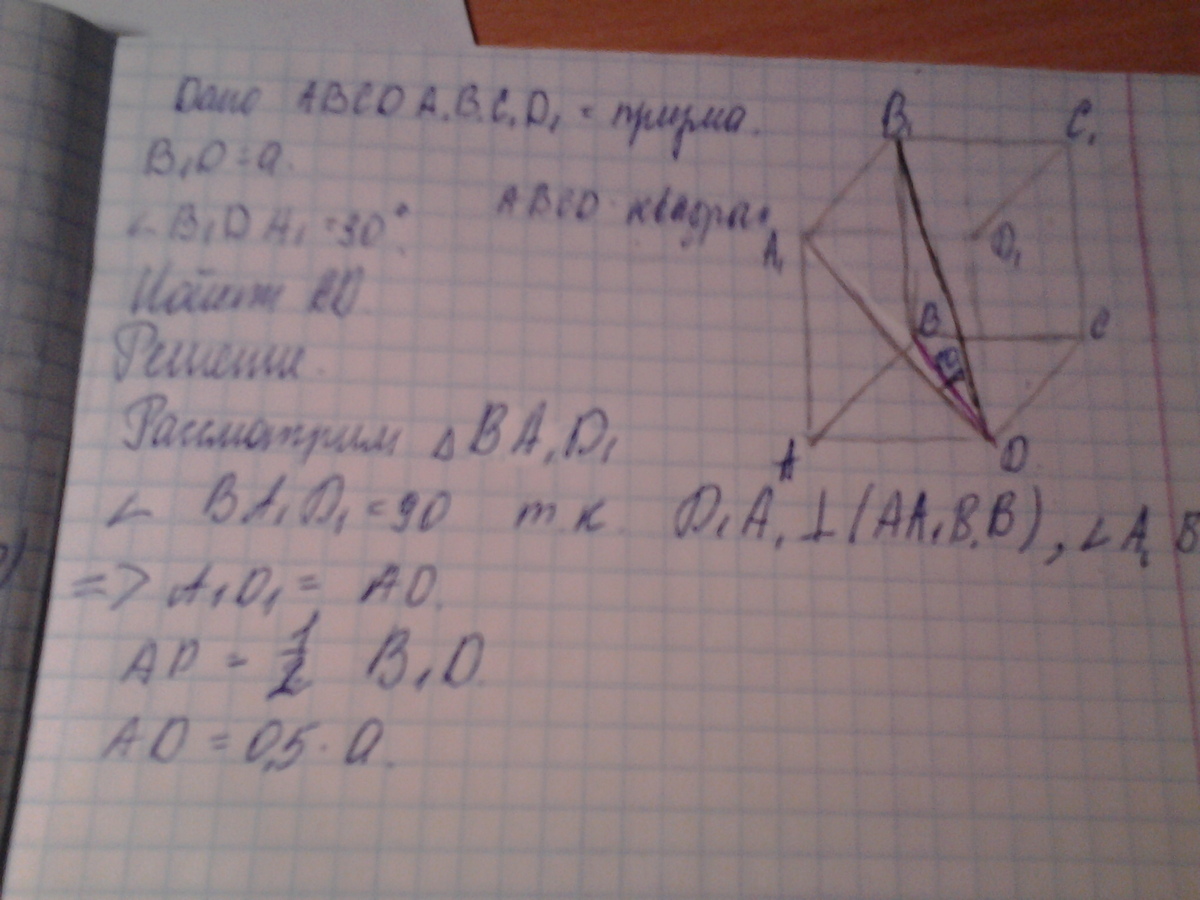 Дано ABCD A₁B₁C₁D₁ - призма.
B₁D = a.
∠ B₁DA₁ = 30°.
ABCD квадрат
Найти AD
Решение.
Рассмотрим △ BA₁D₁
∠ BA₁D₁ = 90 т.к. D₁A₁ ⊥ (AA₁B₁B), ∠A₁
=> A₁D₁ = AD.
AD = 1/2 B₁D.
AD = 0,5 · a.
B₁ C₁
A₁ D₁
B C
A D